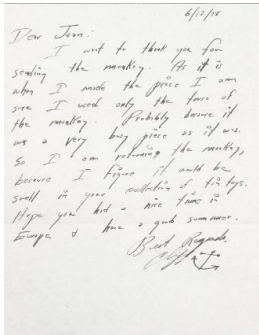 6/12/75
Dear Jean:
I want to thank you for
sending the monkey. As it is
when I made the piece I am
sure I used only the torse of
the monkey. Probably because it
was a very busy piece as it was.
So I am returning the monkey,
because I figure it would be
swell in your collection of tin toys.
Hope you had a nice time in
Europe & have a good summer.
Best Regards